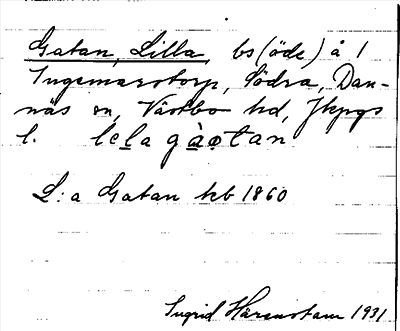 Gatan, Lilla, bs (öde) å 1
Ingemarstorp, Södra, Dan-
näs sn, Västbo hd, Jkpgs
l. lela gàotan
L:a Gatan kb 1860
Ingrid 1931